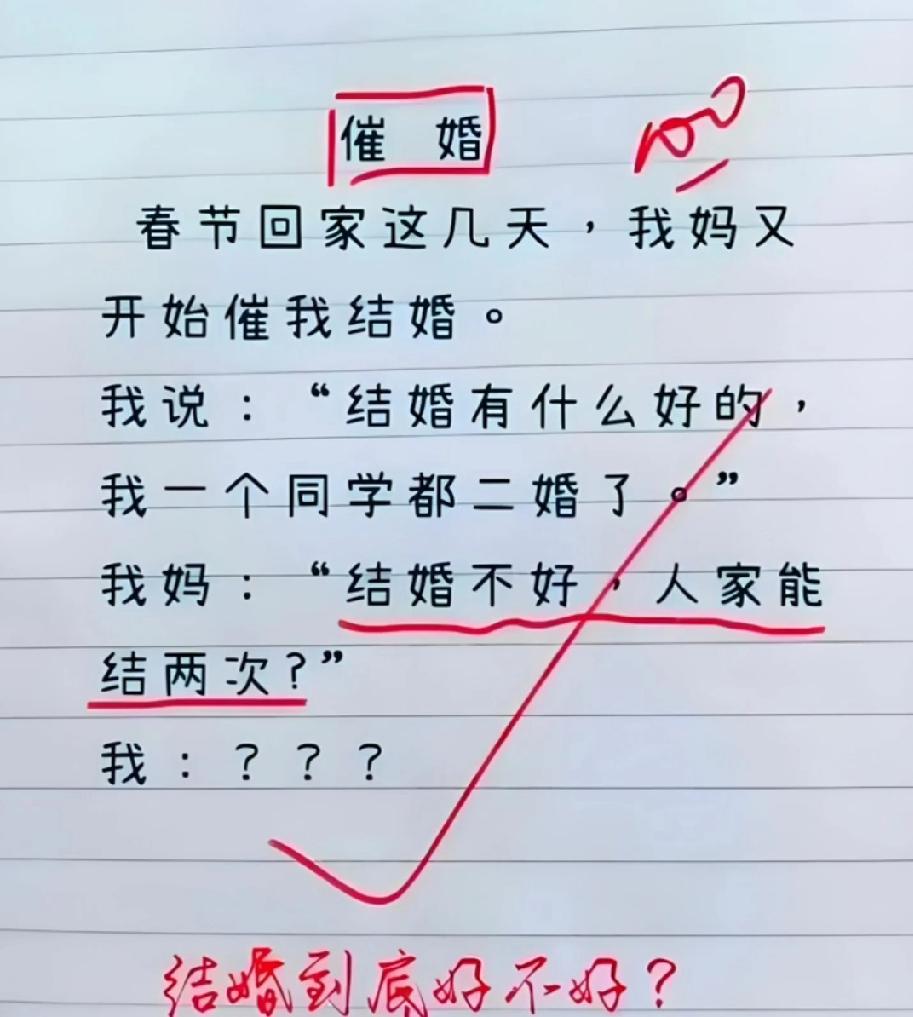 催 婚
100
春节回家这几天，我妈又
开始催我结婚。
我说：“结婚有什么好的，
我一个同学都二婚了。”
我妈：“结婚不好，人家能
结两次？”
我：？？？
结婚到底好不好？